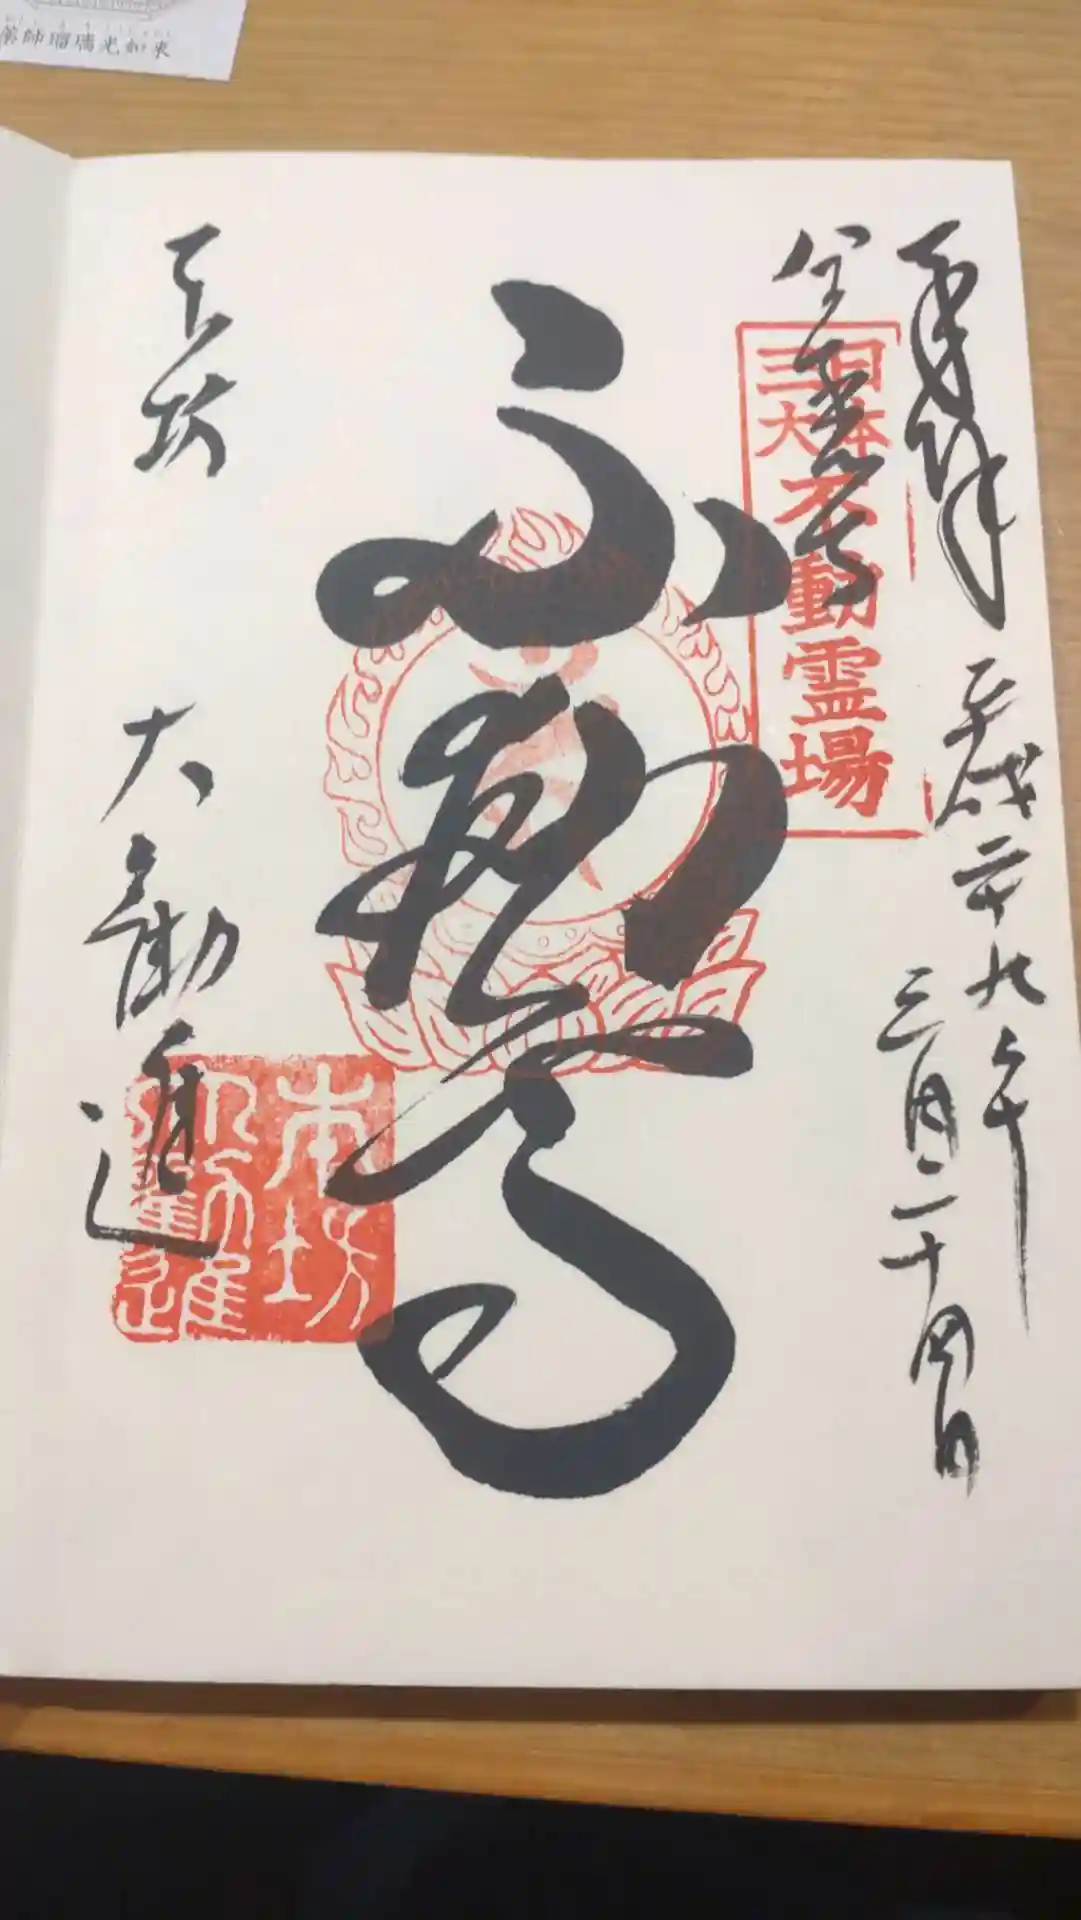 薬師瑠璃光如来
奉拝
平成二十九年
三月二十四日
日本
三大
不動霊場
不動尊
本坊
大勧進
本坊
大勸進